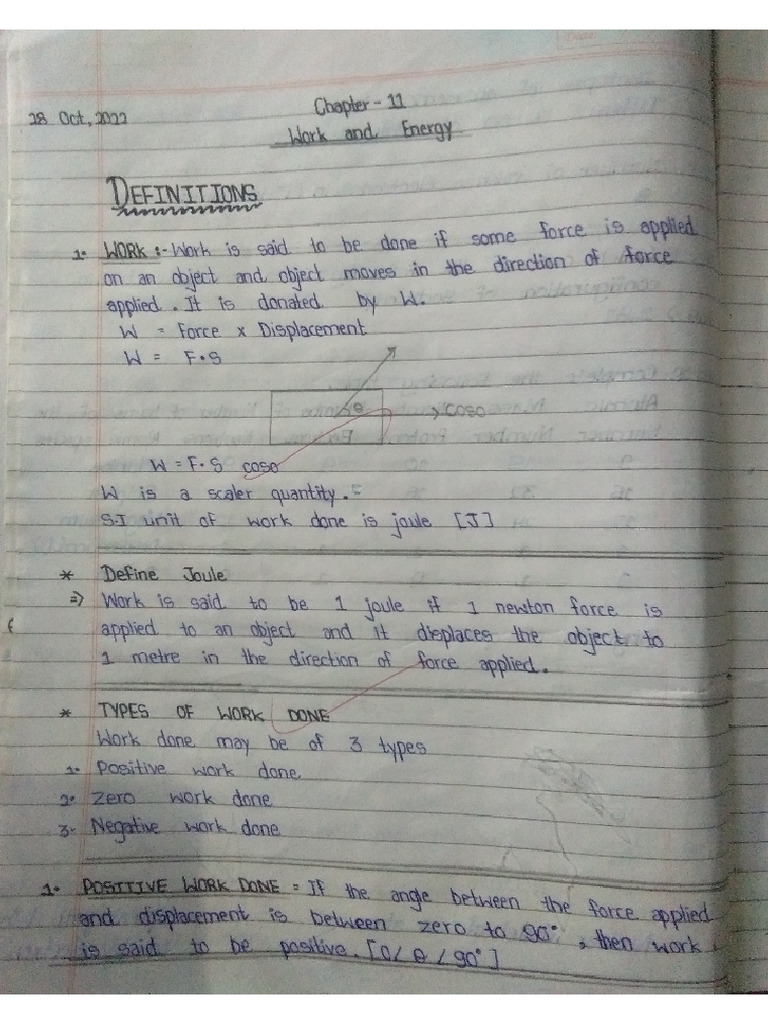 28 Oct, 2022
Chapter - 11
Work and Energy
DEFINITIONS
1. WORK :- Work is said to be done if some force is applied
on an object and object moves in the direction of force
applied. It is donated by W.
W = Force x Displacement
W = F.S
θ
cosθ
W = F.S cosθ
W is a scaler quantity.
S.I unit of work done is joule [J]
* Define Joule
=) Work is said to be 1 joule if 1 newton force is
applied to an object and it displaces the object to
1 metre in the direction of force applied.
* TYPES OF WORK DONE
Work done may be of 3 types
1. Positive work done
2. Zero work done
3. Negative work done
1. POSITIVE WORK DONE = If the angle between the force applied
and displacement is between zero to 90°, then work
is said to be positive. [0∠ θ ∠90°]